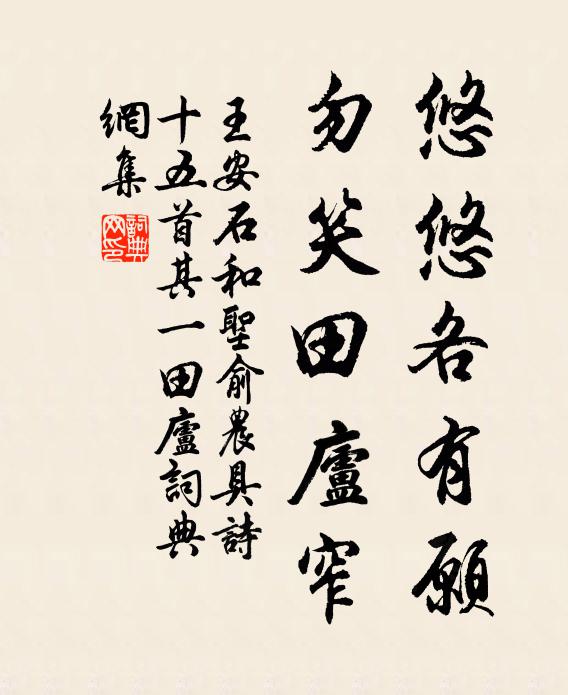 悠悠各有願
勿笑田廬窄
王安石和聖俞農具詩
十五首其一田廬詞典
網集
詞典
网印